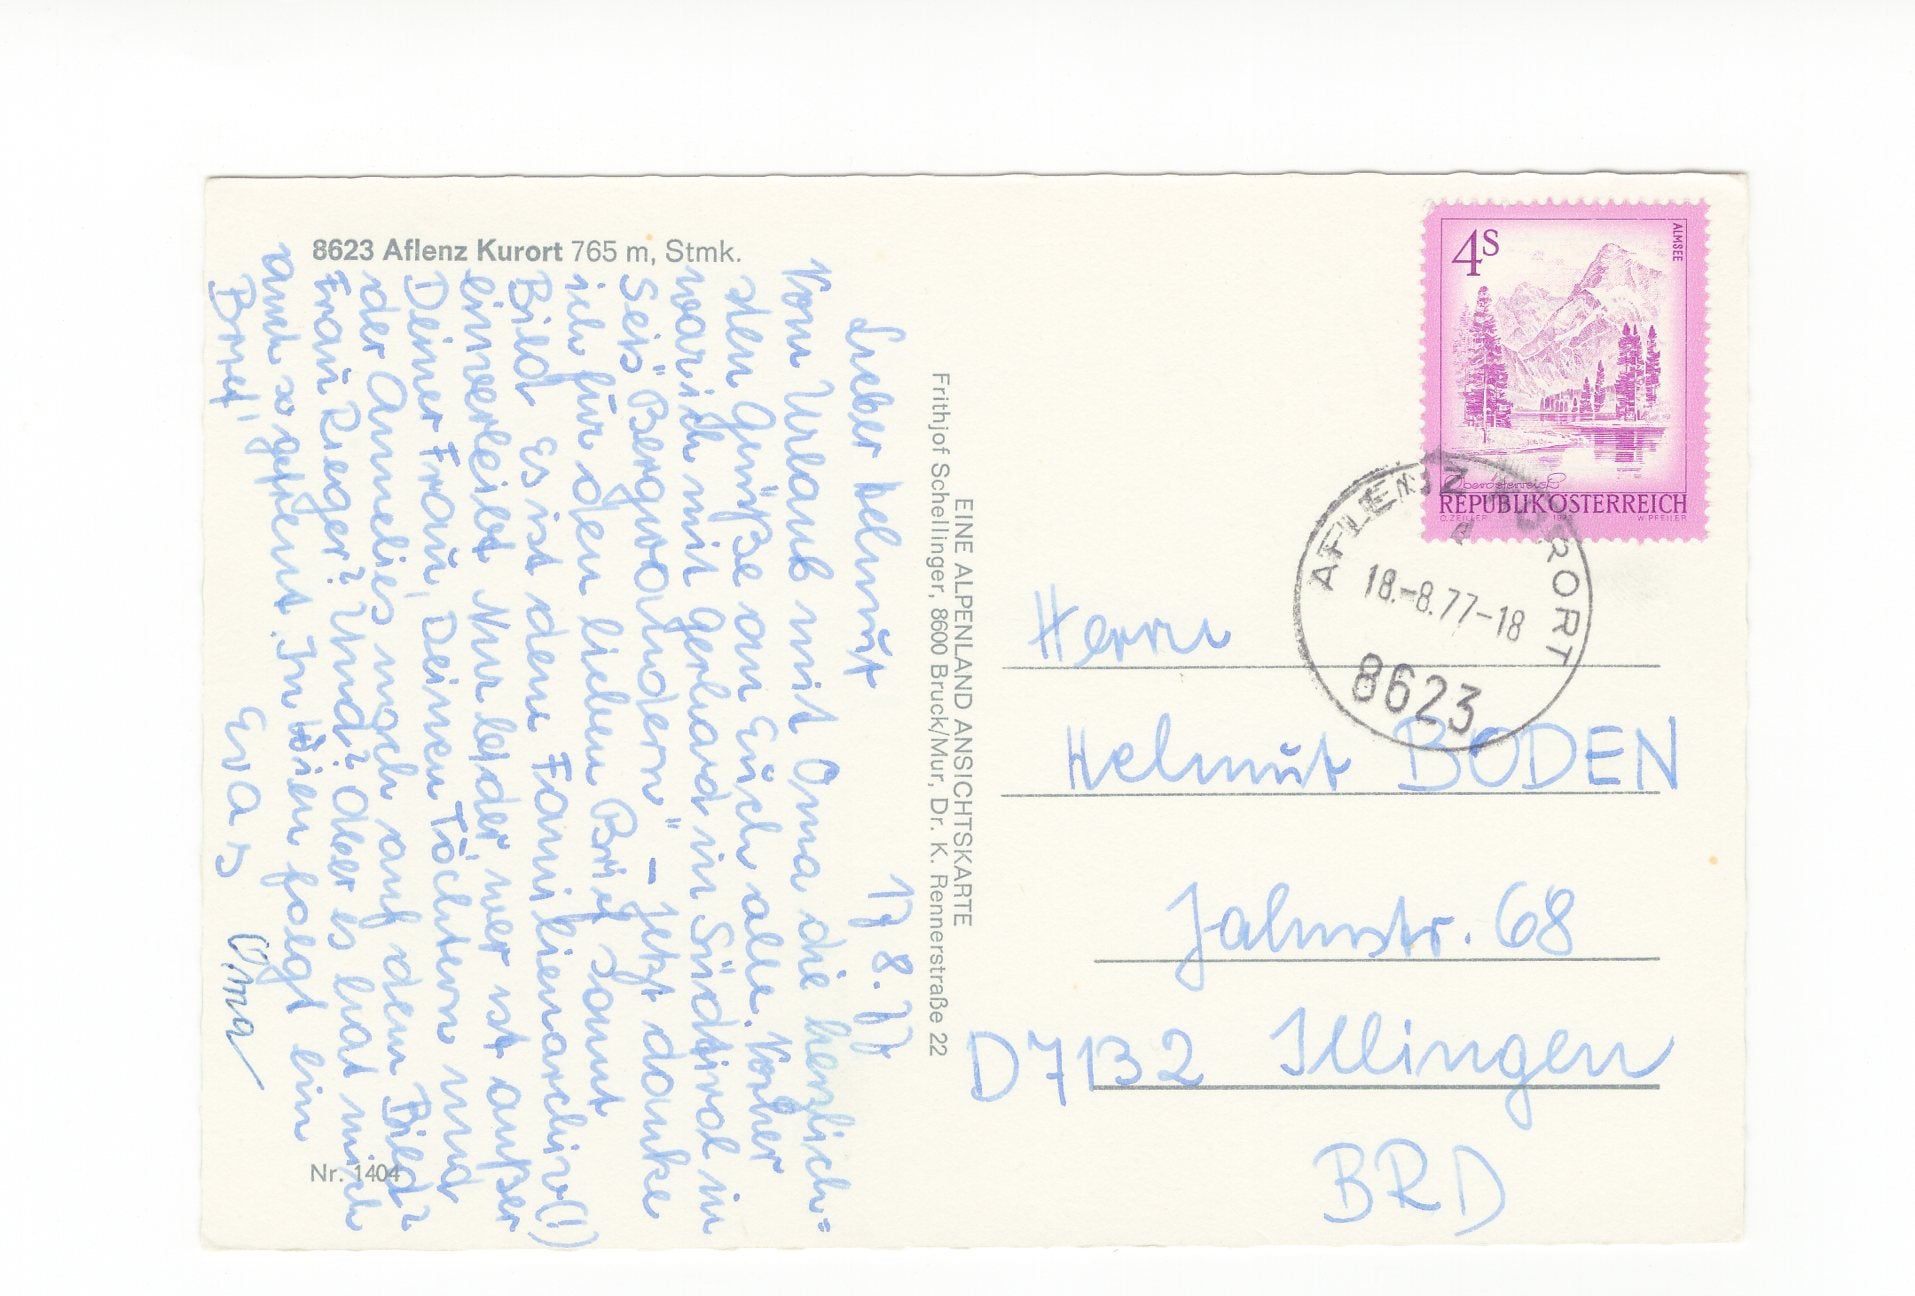 8623 Aflenz Kurort 765 m, Stmk.
17. 8. 77
Lieber Helmut
Vom Urlaub mit Oma die herzlich=
sten Grüße an Euch alle. Vorher
war ich mit Gerhard in Südtirol in
Seis "Bergwandern" - Jetzt danke
ich für den lieben Brief samt
Bild. Es ist dem Familienarchiv (!)
einverleibt. Nur leider wer ist außer
Deiner Frau, Deinen Töchtern und
der Annelies noch auf dem Bild?
Frau Rieger? Und? Aber es hat mich
auch so gefreut. In Wien folgt ein
Brief!
Eva
Oma
Nr. 1404
EINE ALPENLAND ANSICHTSKARTE
Frithjof Schellinger, 8600 Bruck/Mur, Dr. K. Rennerstraße 22
4S
ALMSEE
Oberösterreich
REPUBLIK ÖSTERREICH
O. ZEILLER 1973 W. PFEILER
AFLENZ KURORT
18.-8.77-18
8623
Herrn
Helmut BODEN
Jahnstr. 68
D7132 Illingen
BRD